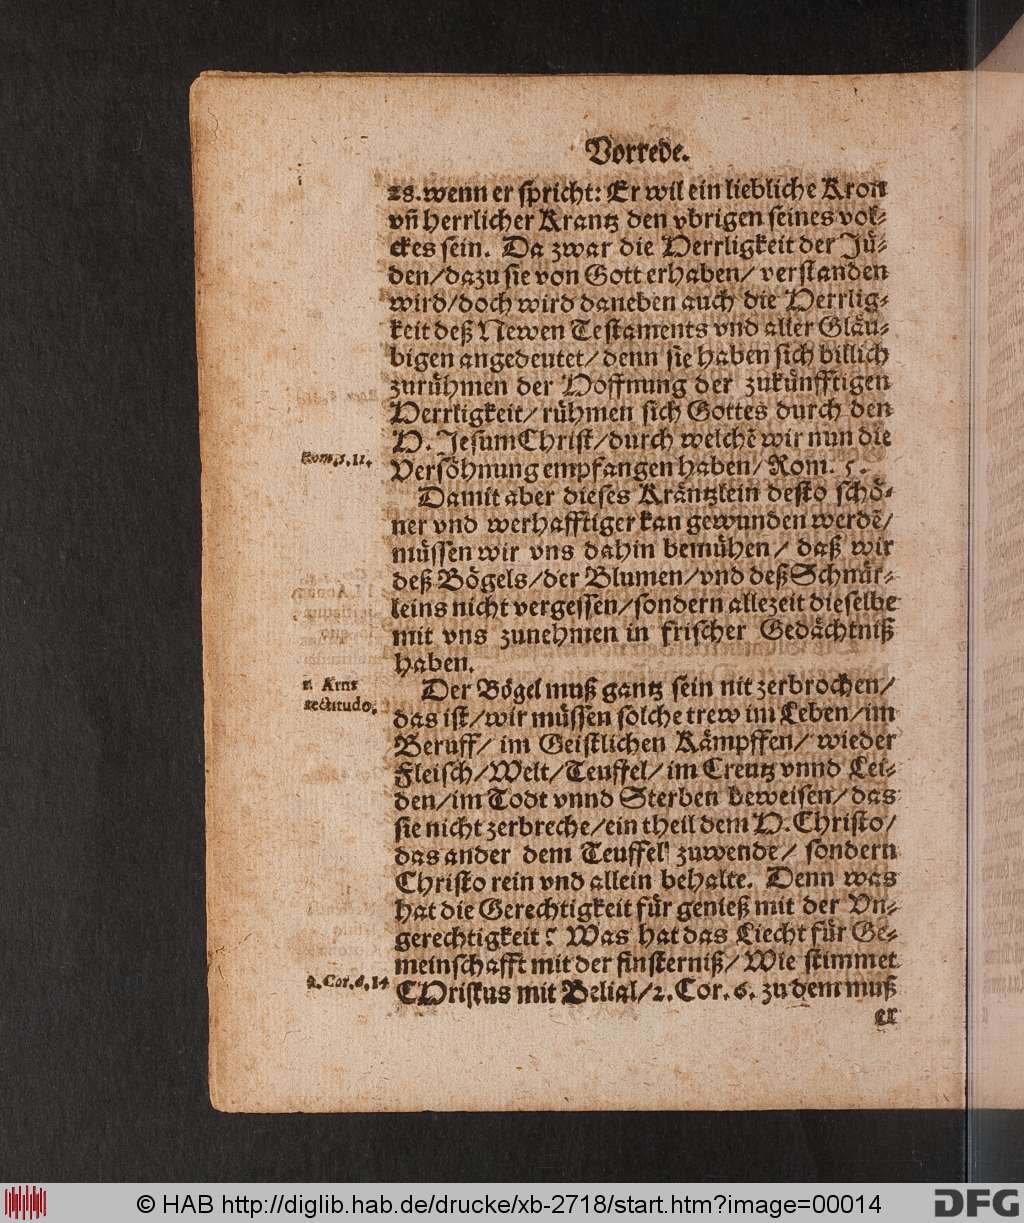 Vorrede.
28. wenn er spricht: Er wil ein liebliche Kron
vñ herrlicher Krantz den vbrigen seines vol-
ckes sein. Da zwar die Herrligkeit der Jü-
den/dazu sie von Gott erhaben/ verstanden
wird/doch wird daneben auch die Herrlig-
keit deß Newen Testaments vnd aller Gläu-
bigen angedeutet/ denn sie haben sich billich
zurühmen der Hoffnung der zukünfftigen
Herrligkeit/ rühmen sich Gottes durch den
H. Jesum Christ/durch welchẽ wir nun die
Rom. 5. 11.
Versöhnung empfangen haben/ Rom. 5.
Damit aber dieses Kräntzlein desto schö-
ner vnd werhafftiger kan gewunden werdẽ/
müssen wir vns dahin bemühen/ daß wir
deß Bögels/der Blumen/vnd deß Schnür-
leins nicht vergessen/sondern allezeit dieselbe
mit vns zunehmen in frischer Gedächtniß
haben.
rectitudo.
Der Bögel muß gantz sein nit zerbrochen/
das ist/wir müssen solche trew im Leben/im
Beruff/ im Geistlichen Kämpffen/ wieder
Fleisch/Welt/Teuffel/im Creutz vnnd Lei-
den/im Todt vnnd Sterben beweisen/das
sie nicht zerbreche/ein theil dem H. Christo/
das ander dem Teuffel zuwende/ sondern
Christo rein vnd allein behalte. Denn was
hat die Gerechtigkeit für genieß mit der Vn-
gerechtigkeit? Was hat das Liecht für Ge-
meinschafft mit der finsterniß/ Wie stimmet
2. Cor. 6. 14
CHristus mit Belial/2. Cor. 6. zu dem muß
er
© HAB http://diglib.hab.de/drucke/xb-2718/start.htm?image=00014
DFG